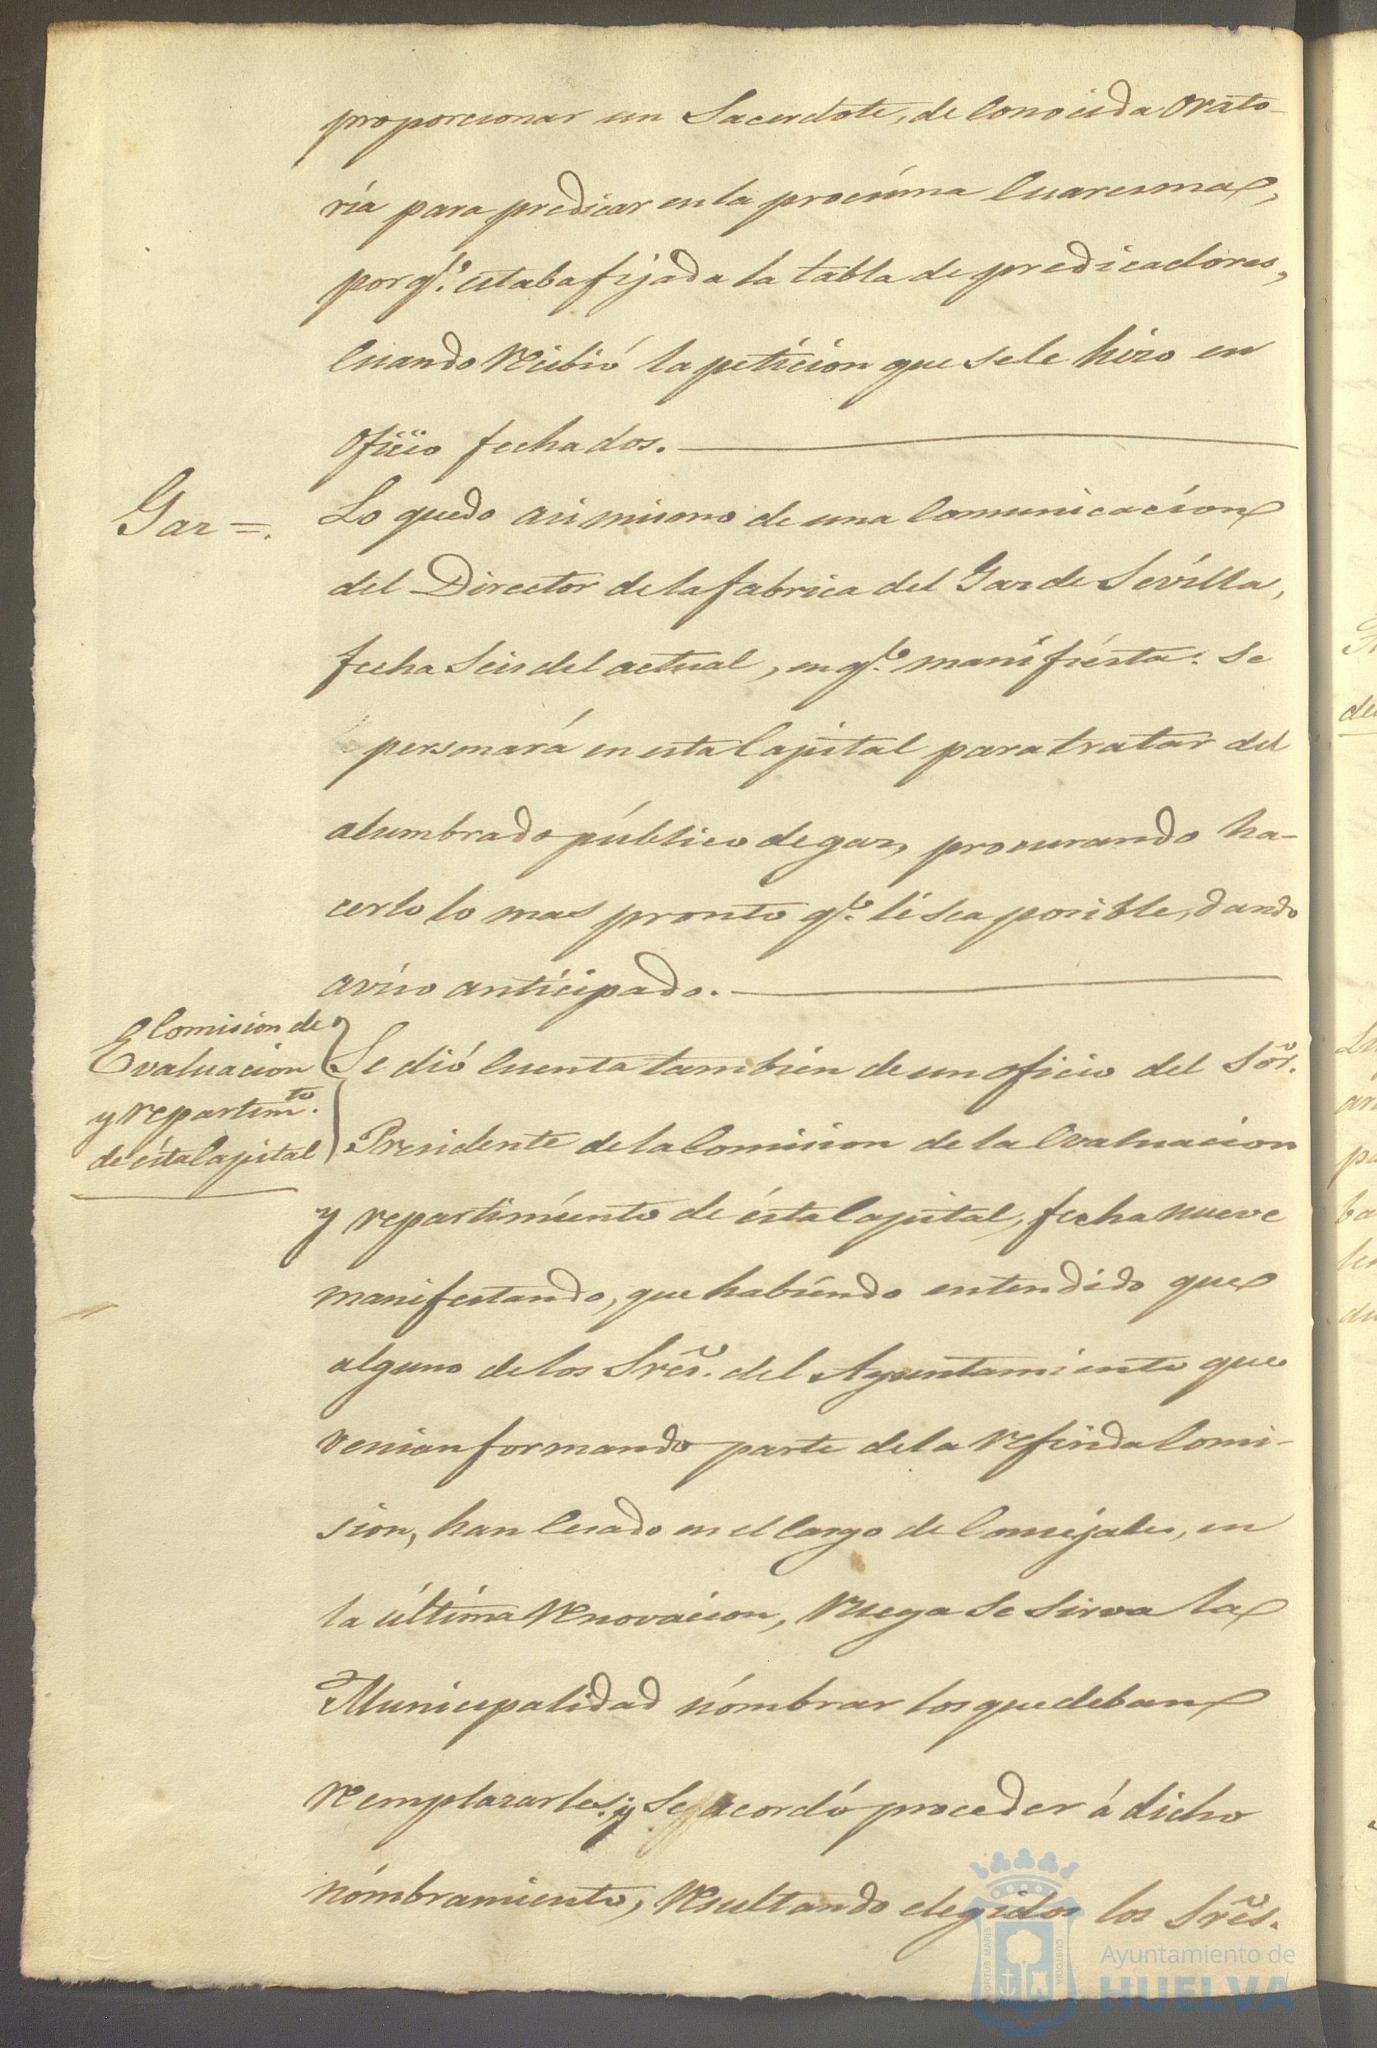 proporcionar un Sacerdote, de conocida Orato-
ría para predicar en la procsima Cuaresma,
por qe. estaba fijada la tabla de predicadores,
cuando recibió la peticion que se le hizo en
oficio fecha dos.
Gaz =.
Lo quedo asi mismo de una Comunicacion
del Director de la fabrica del Gaz de Sevilla,
fecha Seis del actual, en qe. manifiésta: se
personará en esta Capital para tratar del
alumbrado público de gaz, procurando ha-
cerlo lo mas pronto qe. lé sea posible, dando
aviso anticipado.
Comision de
Evaluacion
y repartimto.
de ésta Capital
Se dió cuenta tambien de un oficio del Sor.
Presidente de la Comision de la Evaluacion
y repartimiento de ésta Capital, fecha nueve
manifestando, que habiendo entendido que
alguno de los Sres. del Ayuntamiento que
venian formando parte de la referida Comi-
sion, han cesado en el cargo de Consejales, en
la última renovacion, ruega se sirva la
Municipalidad nómbrar los que deban
remplazarles; y se acordó proceder á dicho
nómbramiento, resultando elegidos los Sres.
Ayuntamiento de
HUELVA
PORTUS MARIS
CUSTODIA